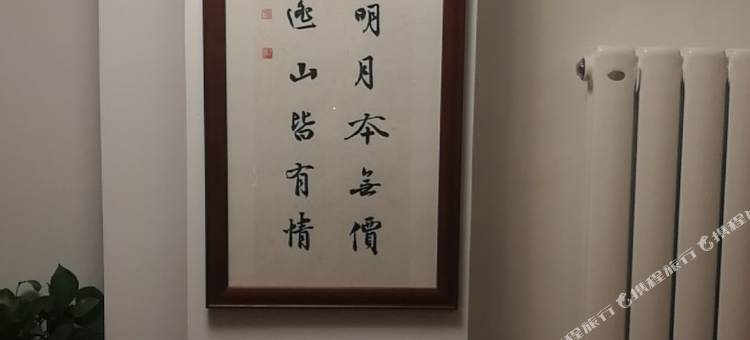 明月本無價
遠山皆有情
携程旅行
携程